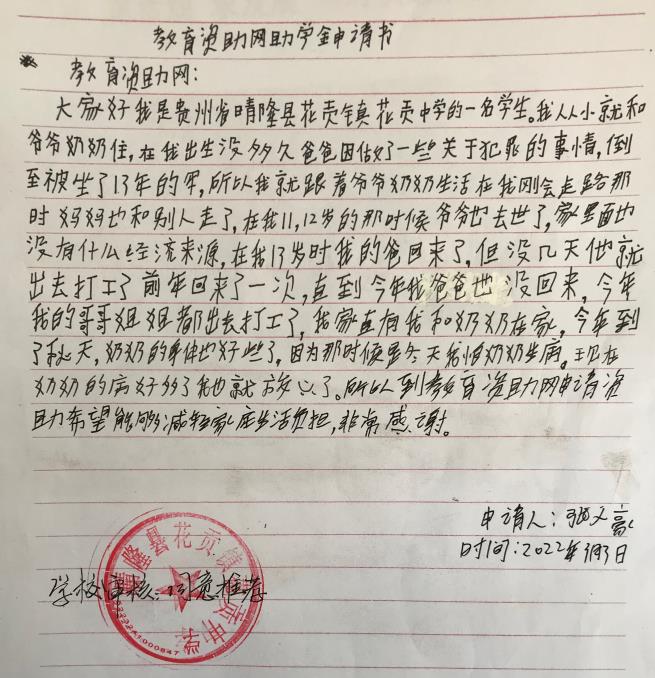 教育资助网助学金申请书
教育资助网：
大家好我是贵州省晴隆县花贡镇花贡中学的一名学生。我从小就和
爷爷奶奶住，在我出生没多久爸爸因做了一些关于犯罪的事情，倒
至被生了13年的牢，所以我就跟着爷爷奶奶生活在我刚会走路那
时妈妈也和别人走了，在我11，12岁的那时候爷爷也去世了，家里面也
没有什么经济来源，在我13岁时我的爸回来了，但没几天他就
出去打工了前年回来了一次，直到今年我爸爸也没回来，今年
我的哥哥姐姐都出去打工了，我家直有我和奶奶在家，今年到
了秋天，奶奶的身体也好些了，因为那时候是冬天我怕奶奶生病。现在
奶奶的病好多了我也就放心了。所以到教育资助网申请资
助希望能够减轻家庭生活负担，非常感谢。
申请人：张文豪
时间：2022年3月3日
学校审核：同意推荐
晴隆县花贡镇花贡中学